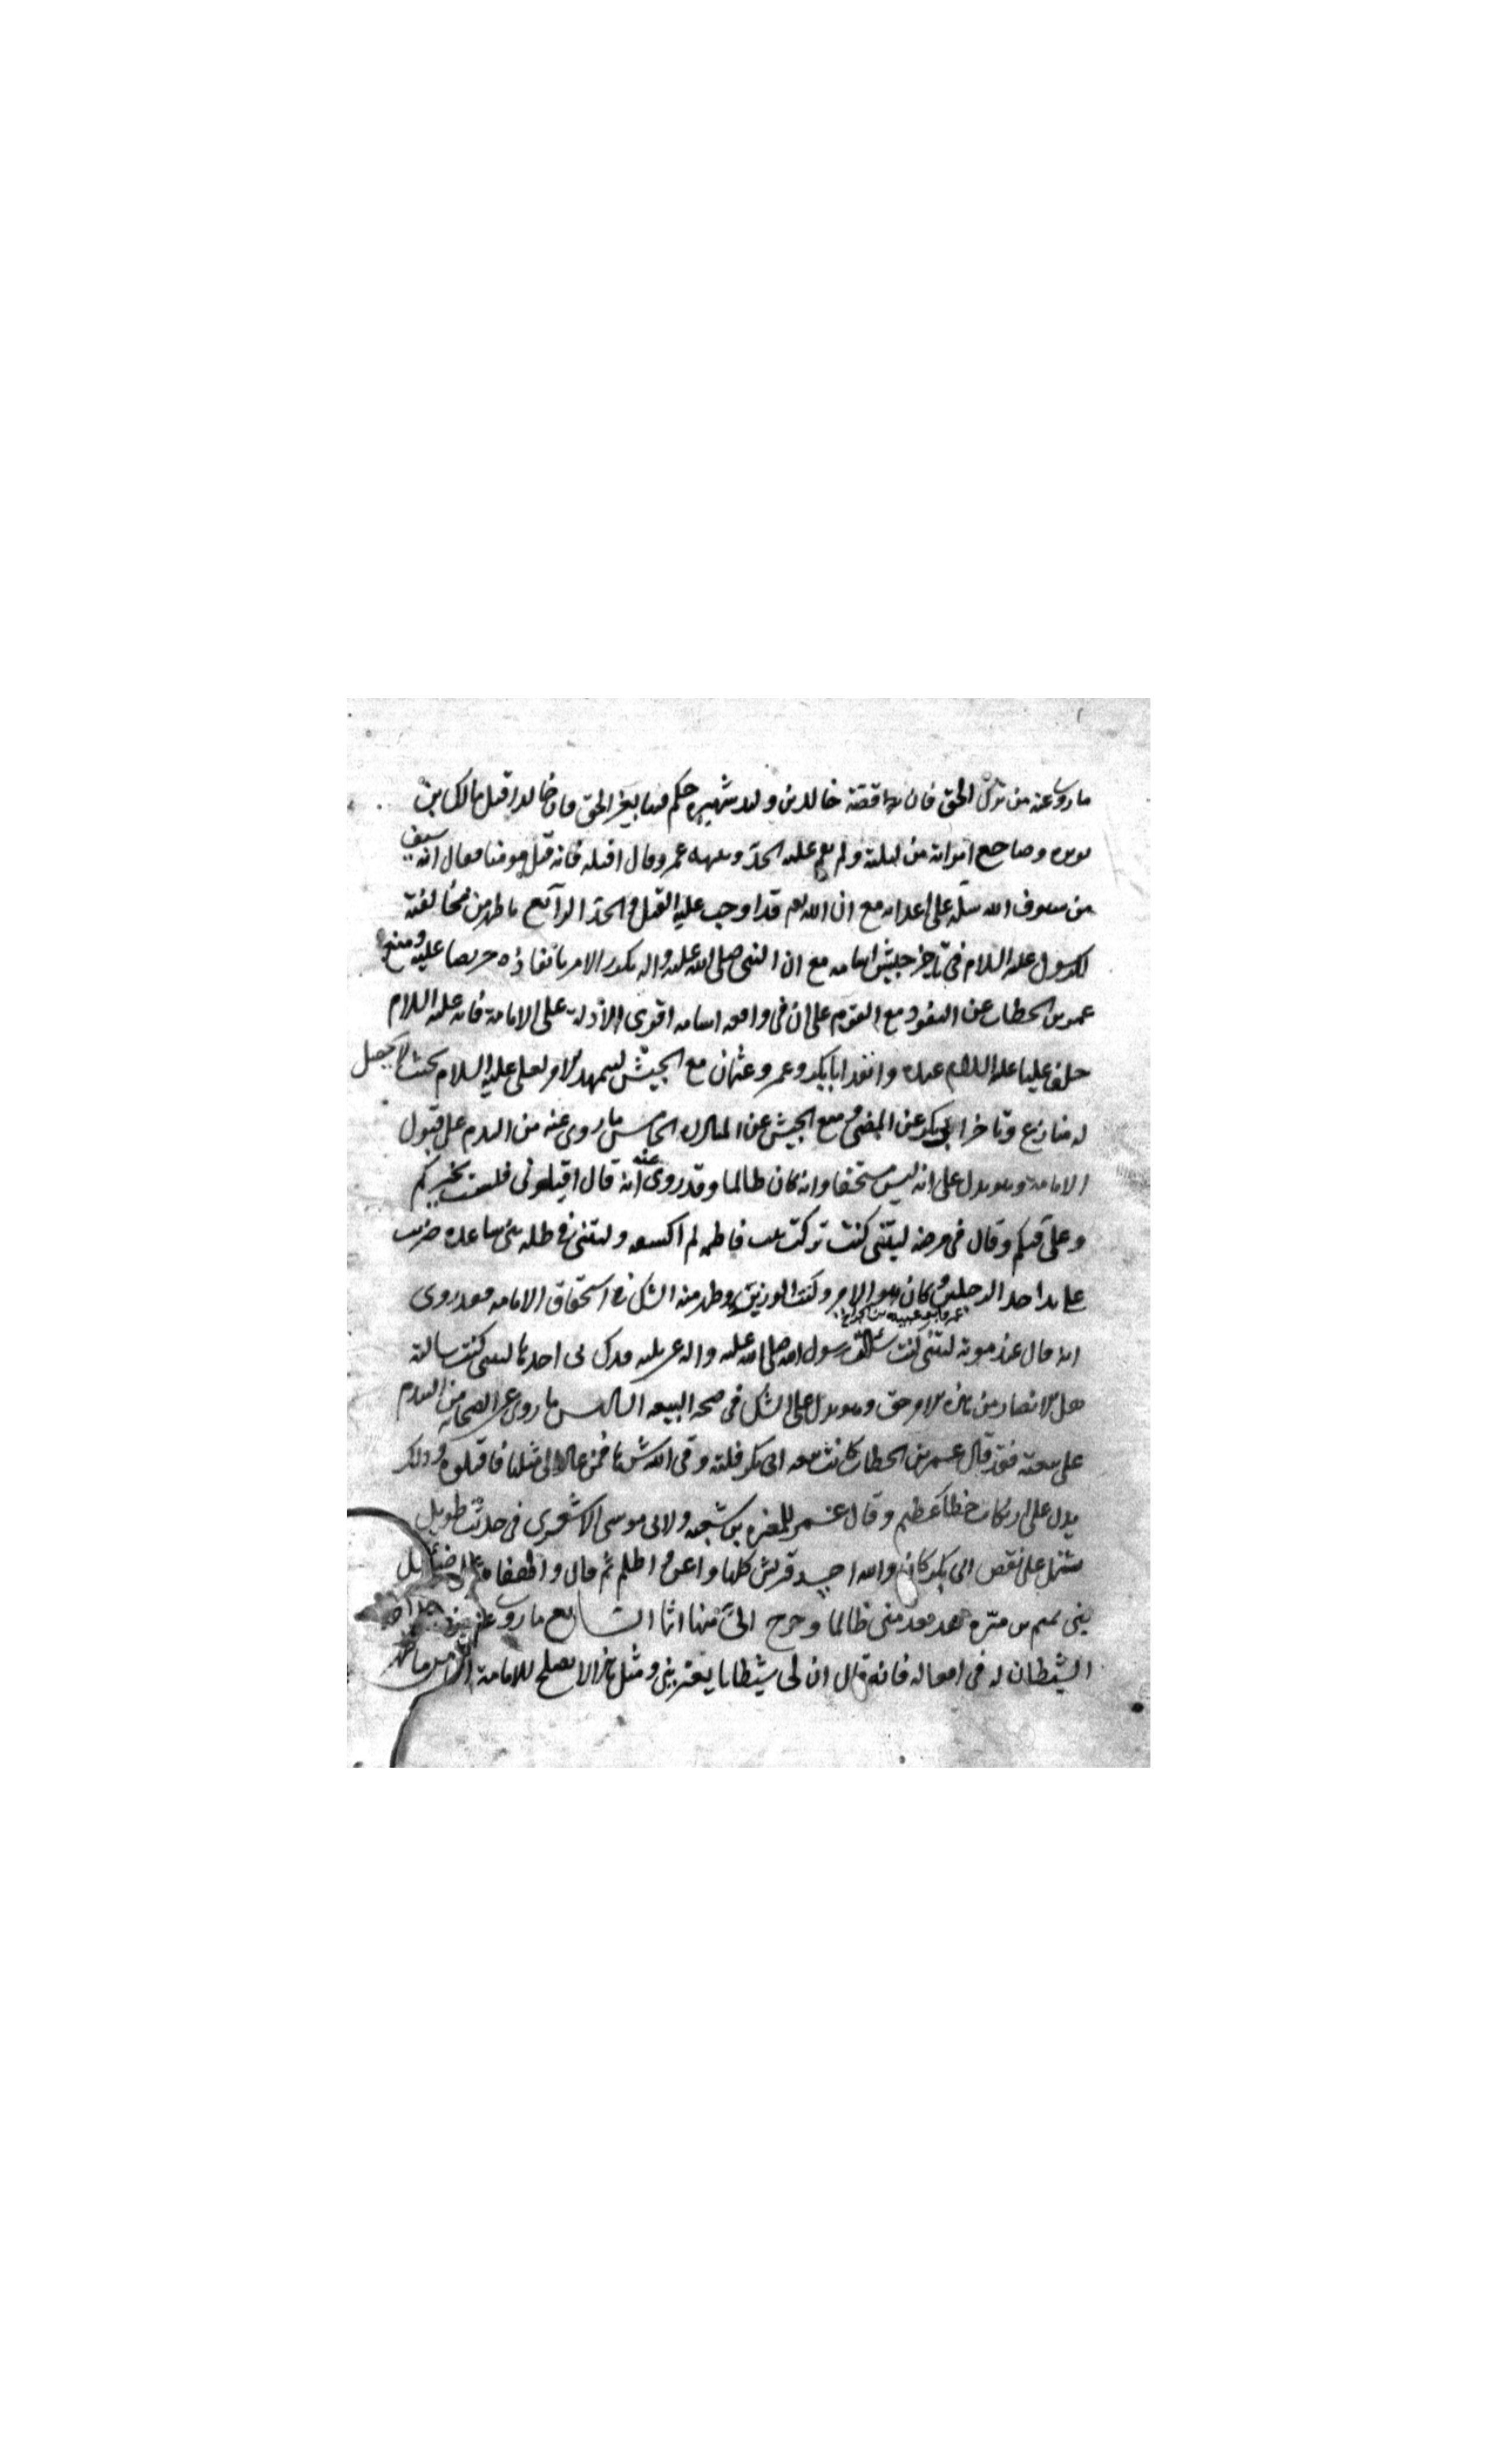 ما روى عنه من ترك الحق فان واقعة خالد بن وليد شهيرة حكم فيها بغير الحق فان خالد اقتل مالك بن
نويره وضاجع امراته من ليلته ولم يقم عليه الحد ونبهه عمر وقال اقتله فانه قتل مومنا فقال انه سيف
من سيوف الله سله على اعدائه مع ان الله تعم قد اوجب عليه القتل والحد الرابع ما ظهر من مخالفته
للرسول عليه السلام في تاخير جيش اسامه مع ان النبي صلى الله عليه واله يكرر الامر بانفاذه حريصا عليه ومنع
عمر بن الخطاب عن النفوذ مع القوم على ان في واقعه اسامه اقوى الادلة على الامامة فانه عليه السلام
خلف عليا عليه السلام عنده وانفذ ابا بكر وعمر وعثمان مع الجيش ليتمهد الامر لعلى عليه السلام بحيث لا يحصل
له منازع وتاخر ابي بكر عن المضى ومنع الجيش عن المنازل الخامس ما روى عنه من الندم على قبول
الامامة وهو يدل على انه ليس مستحقا وانه كان ظالما وقد روى عنه انه قال اقيلونى فلست بخيركم
وعلى فيكم وقال في مرضه ليتنى كنت تركت بيت فاطمه لم اكشفه وليتنى في ظله بنى ساعده ضربت
على يد احد الرجلين وكان هو الامير وكنت الوزير وظهر منه الشك في استحقاق الامامه فقد روى
عمر وابو عبيدة بن الجراح
انه قال عند موته ليتنى كنت سالت رسول الله صلى الله عليه واله عن ثلثه فذكر في احدها ليتنى كنت سالته
هل للانصار من هذه الامر حق وهو يدل على الشك في صحه البيعه السادس ما روى عن الصحابه من الندم
على بيعته فقد قال عمر بن الخطاب كانت بيعه ابى بكر فلته وقى الله شرها فمن عاد الى مثلها فاقتلوه وذلك
يدل على ارتكاب خطا عظيم وقال عمر للمغيره بن شعبه ولابى موسى الاشعرى في حديث طويل
يشتمل على نقص ابى بكر كان والله احسد قريش كلها واعق واظلم ثم قال والهفاه على ضئيل
بنى تميم بن مره لقد تقدمنى ظالما وخرج الى منها اثما السابع ما روى عنه من
الشيطان له في افعاله فانه قال ان لى شيطانا يعترينى ومثل هذا لا يصلح للامامة الثامن ما ظهر